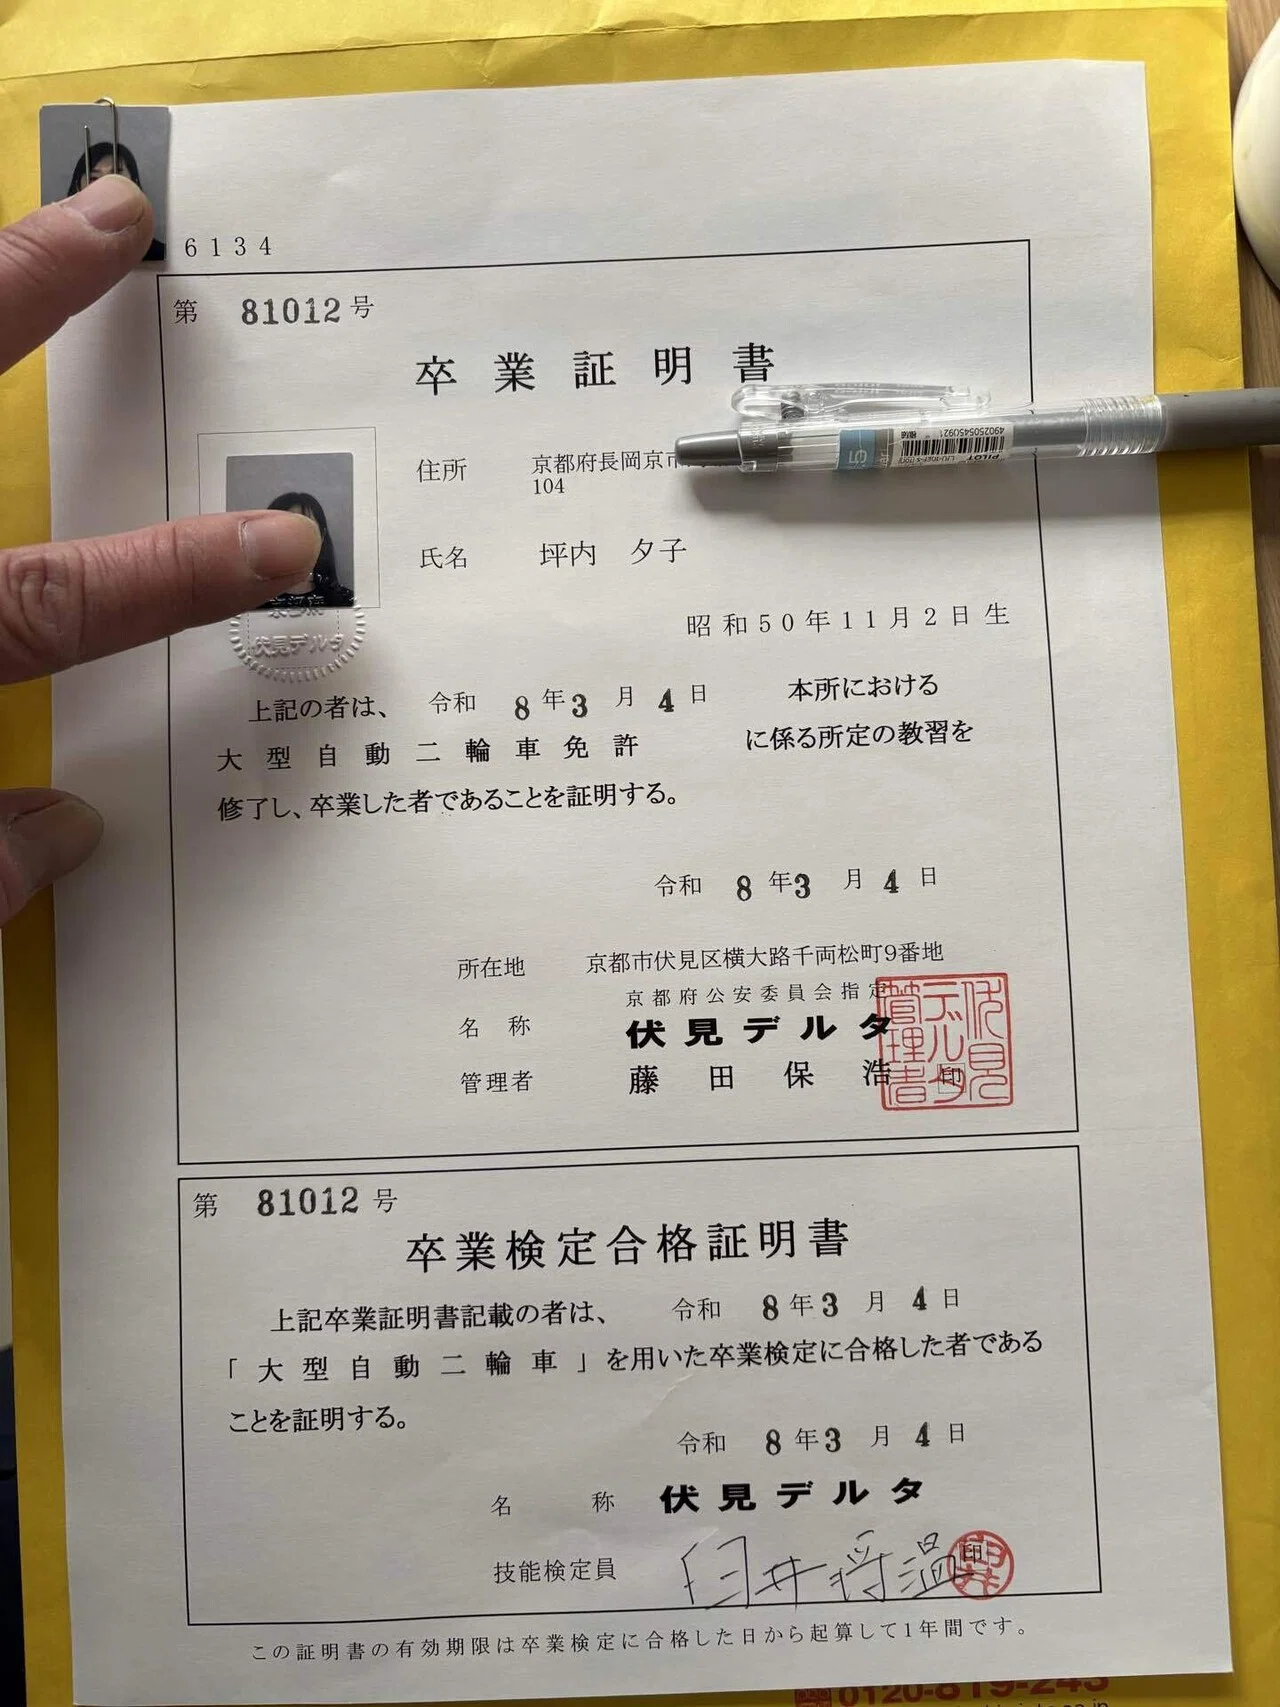 6134
第 81012 号
卒業証明書
住所 京都府長岡京市
104
氏名 坪内 夕子
昭和50年11月2日生
京都府
伏見デルタ
上記の者は、 令和 8 年 3 月 4 日 本所における
大型自動二輪車免許 に係る所定の教習を
修了し、卒業した者であることを証明する。
令和 8 年 3 月 4 日
所在地 京都市伏見区横大路千両松町9番地
京都府公安委員会指定
名称 伏見デルタ
管理者 藤田保浩 印
伏見デルタ管理者
第 81012 号
卒業検定合格証明書
上記卒業証明書記載の者は、 令和 8 年 3 月 4 日
「大型自動二輪車」を用いた卒業検定に合格した者である
ことを証明する。
令和 8 年 3 月 4 日
名称 伏見デルタ
技能検定員 臼井将温 印
この証明書の有効期限は卒業検定に合格した日から起算して1年間です。
PILOT
4902505450921
0120-819-243